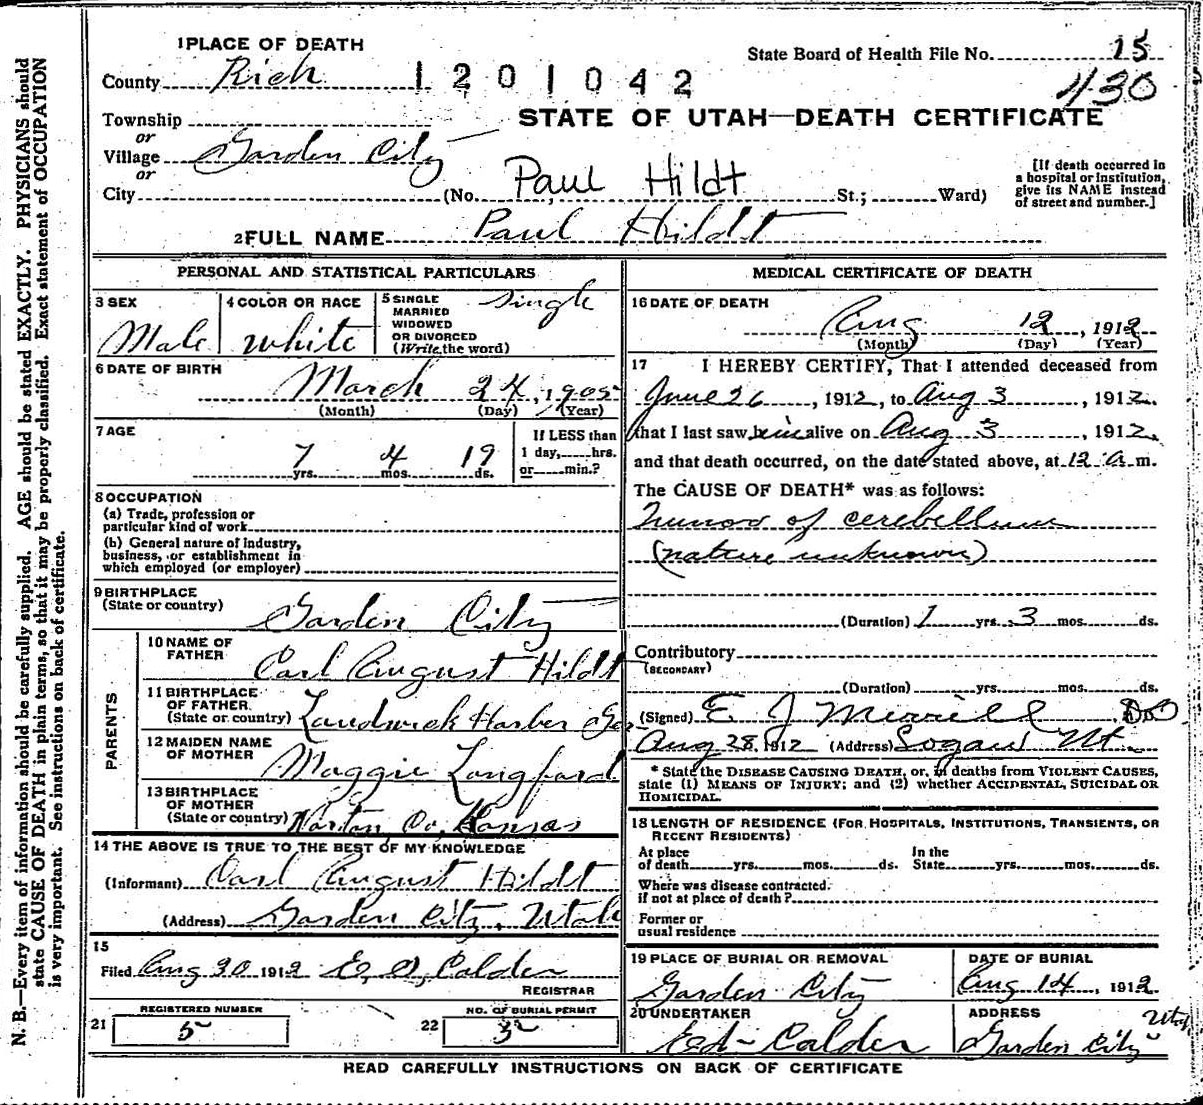 N. B.—Every item of information should be carefully supplied. AGE should be stated EXACTLY. PHYSICIANS should
state CAUSE OF DEATH in plain terms, so that it may be properly classified. Exact statement of OCCUPATION
is very important. See instructions on back of certificate.
1 PLACE OF DEATH
State Board of Health File No. 15
County Rich 1201042
430
Township
STATE OF UTAH—DEATH CERTIFICATE
or
Village Garden City
or
City (No. Paul Hildt St.; Ward)
[If death occurred in
a hospital or institution,
give its NAME instead
of street and number.]
2 FULL NAME Paul Hildt
PERSONAL AND STATISTICAL PARTICULARS
3 SEX
Male
4 COLOR OR RACE
White
5 SINGLE
MARRIED
WIDOWED
OR DIVORCED
(Write the word)
Single
6 DATE OF BIRTH
March 24, 1905
(Month) (Day) (Year)
7 AGE
7 yrs. 4 mos. 19 ds.
If LESS than
1 day, hrs.
or min.?
8 OCCUPATION
(a) Trade, profession or
particular kind of work
(b) General nature of industry,
business, or establishment in
which employed (or employer)
9 BIRTHPLACE
(State or country)
Garden City
PARENTS
10 NAME OF
FATHER
Carl August Hildt
11 BIRTHPLACE
OF FATHER
(State or country) Harber Ger
12 MAIDEN NAME
OF MOTHER
Maggie Longford
13 BIRTHPLACE
OF MOTHER
(State or country) Norton, Co, Kansas
14 THE ABOVE IS TRUE TO THE BEST OF MY KNOWLEDGE
(Informant) Carl August Hildt
(Address) Garden City, Utah
15
Filed Aug 30 1912 E, D, Calder
REGISTRAR
21
REGISTERED NUMBER
5
22
NO. OF BURIAL PERMIT
MEDICAL CERTIFICATE OF DEATH
16 DATE OF DEATH
Aug 12, 1912
(Month) (Day) (Year)
17 I HEREBY CERTIFY, That I attended deceased from
June 26, 1912, to Aug 3, 1912,
that I last saw him alive on Aug 3, 1912,
and that death occurred, on the date stated above, at 12 a. m.
The CAUSE OF DEATH* was as follows:
Tumor of cerebellum
(nature unknown)
(Duration) 1 yrs. 3 mos. ds.
Contributory
(SECONDARY)
(Duration) yrs. mos. ds.
(Signed) E J Merrill
Aug 28, 1912 (Address) Logan Ut.
* State the DISEASE CAUSING DEATH, or, in deaths from VIOLENT CAUSES,
state (1) MEANS OF INJURY; and (2) whether ACCIDENTAL, SUICIDAL OR
HOMICIDAL.
18 LENGTH OF RESIDENCE (FOR HOSPITALS, INSTITUTIONS, TRANSIENTS, OR
RECENT RESIDENTS)
At place
of death yrs. mos. ds.
In the
State yrs. mos. ds.
Where was disease contracted.
if not at place of death?
Former or
usual residence
19 PLACE OF BURIAL OR REMOVAL
Garden City
DATE OF BURIAL
Aug 14, 1912
20 UNDERTAKER
Ed Calder
ADDRESS
Garden City Utah
READ CAREFULLY INSTRUCTIONS ON BACK OF CERTIFICATE